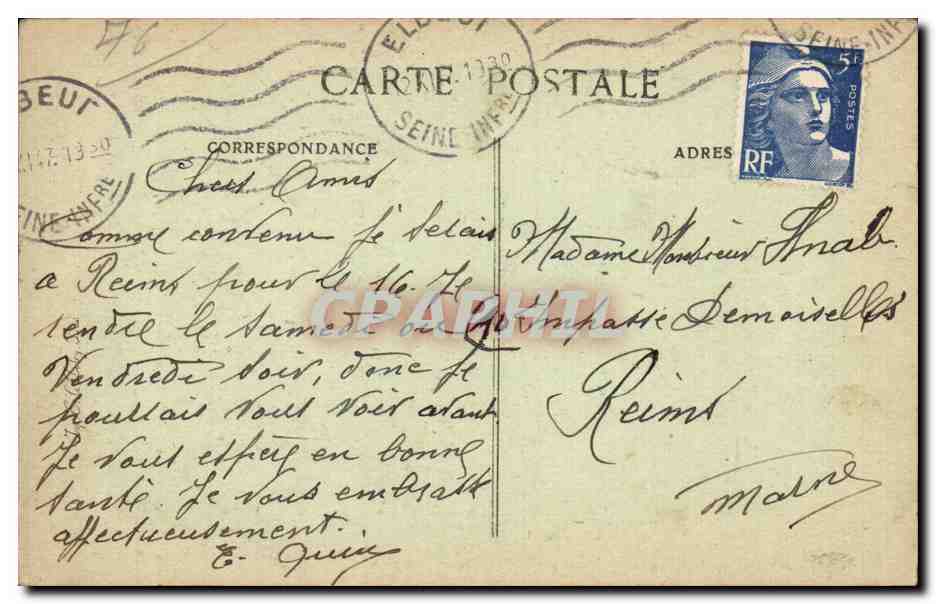 76
ELBEUF
SEINE-INFRE
BEUF
13 30
SEINE-INFRE
SEINE-INF
CARTE POSTALE
5F
POSTES
RF
CORRESPONDANCE
ADRES
Chers Amis
Comme convenu je serais
a Reims pour le 16. Je
rendre le samedi ou
Vendredi soir, donc je
pourrais vous voir avant
Je vous espère en bonne
santé. Je vous embrasse
affectueusement.
E.
Madame Monsieur
Impasse Demoiselles
Reims
Marne
CPAPHIL